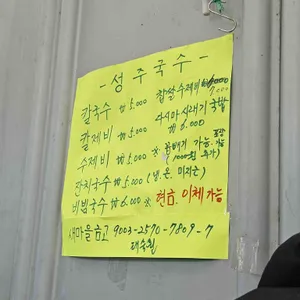 - 성주국수 -
칼국수 ₩5.000 찹쌀수제비 ₩ 7.000
칼제비 ₩5.000 다시마시래기국밥 ₩6.000
수제비 ₩5.000 ※ 곱배기 가능. (1000원 추가) 포장 가능
잔치국수 ₩5.000 (냉. 온. 미지근)
비빔국수 ₩6.000 ※ 현금. 이체가능
새마을금고 9003-2570-7809-7